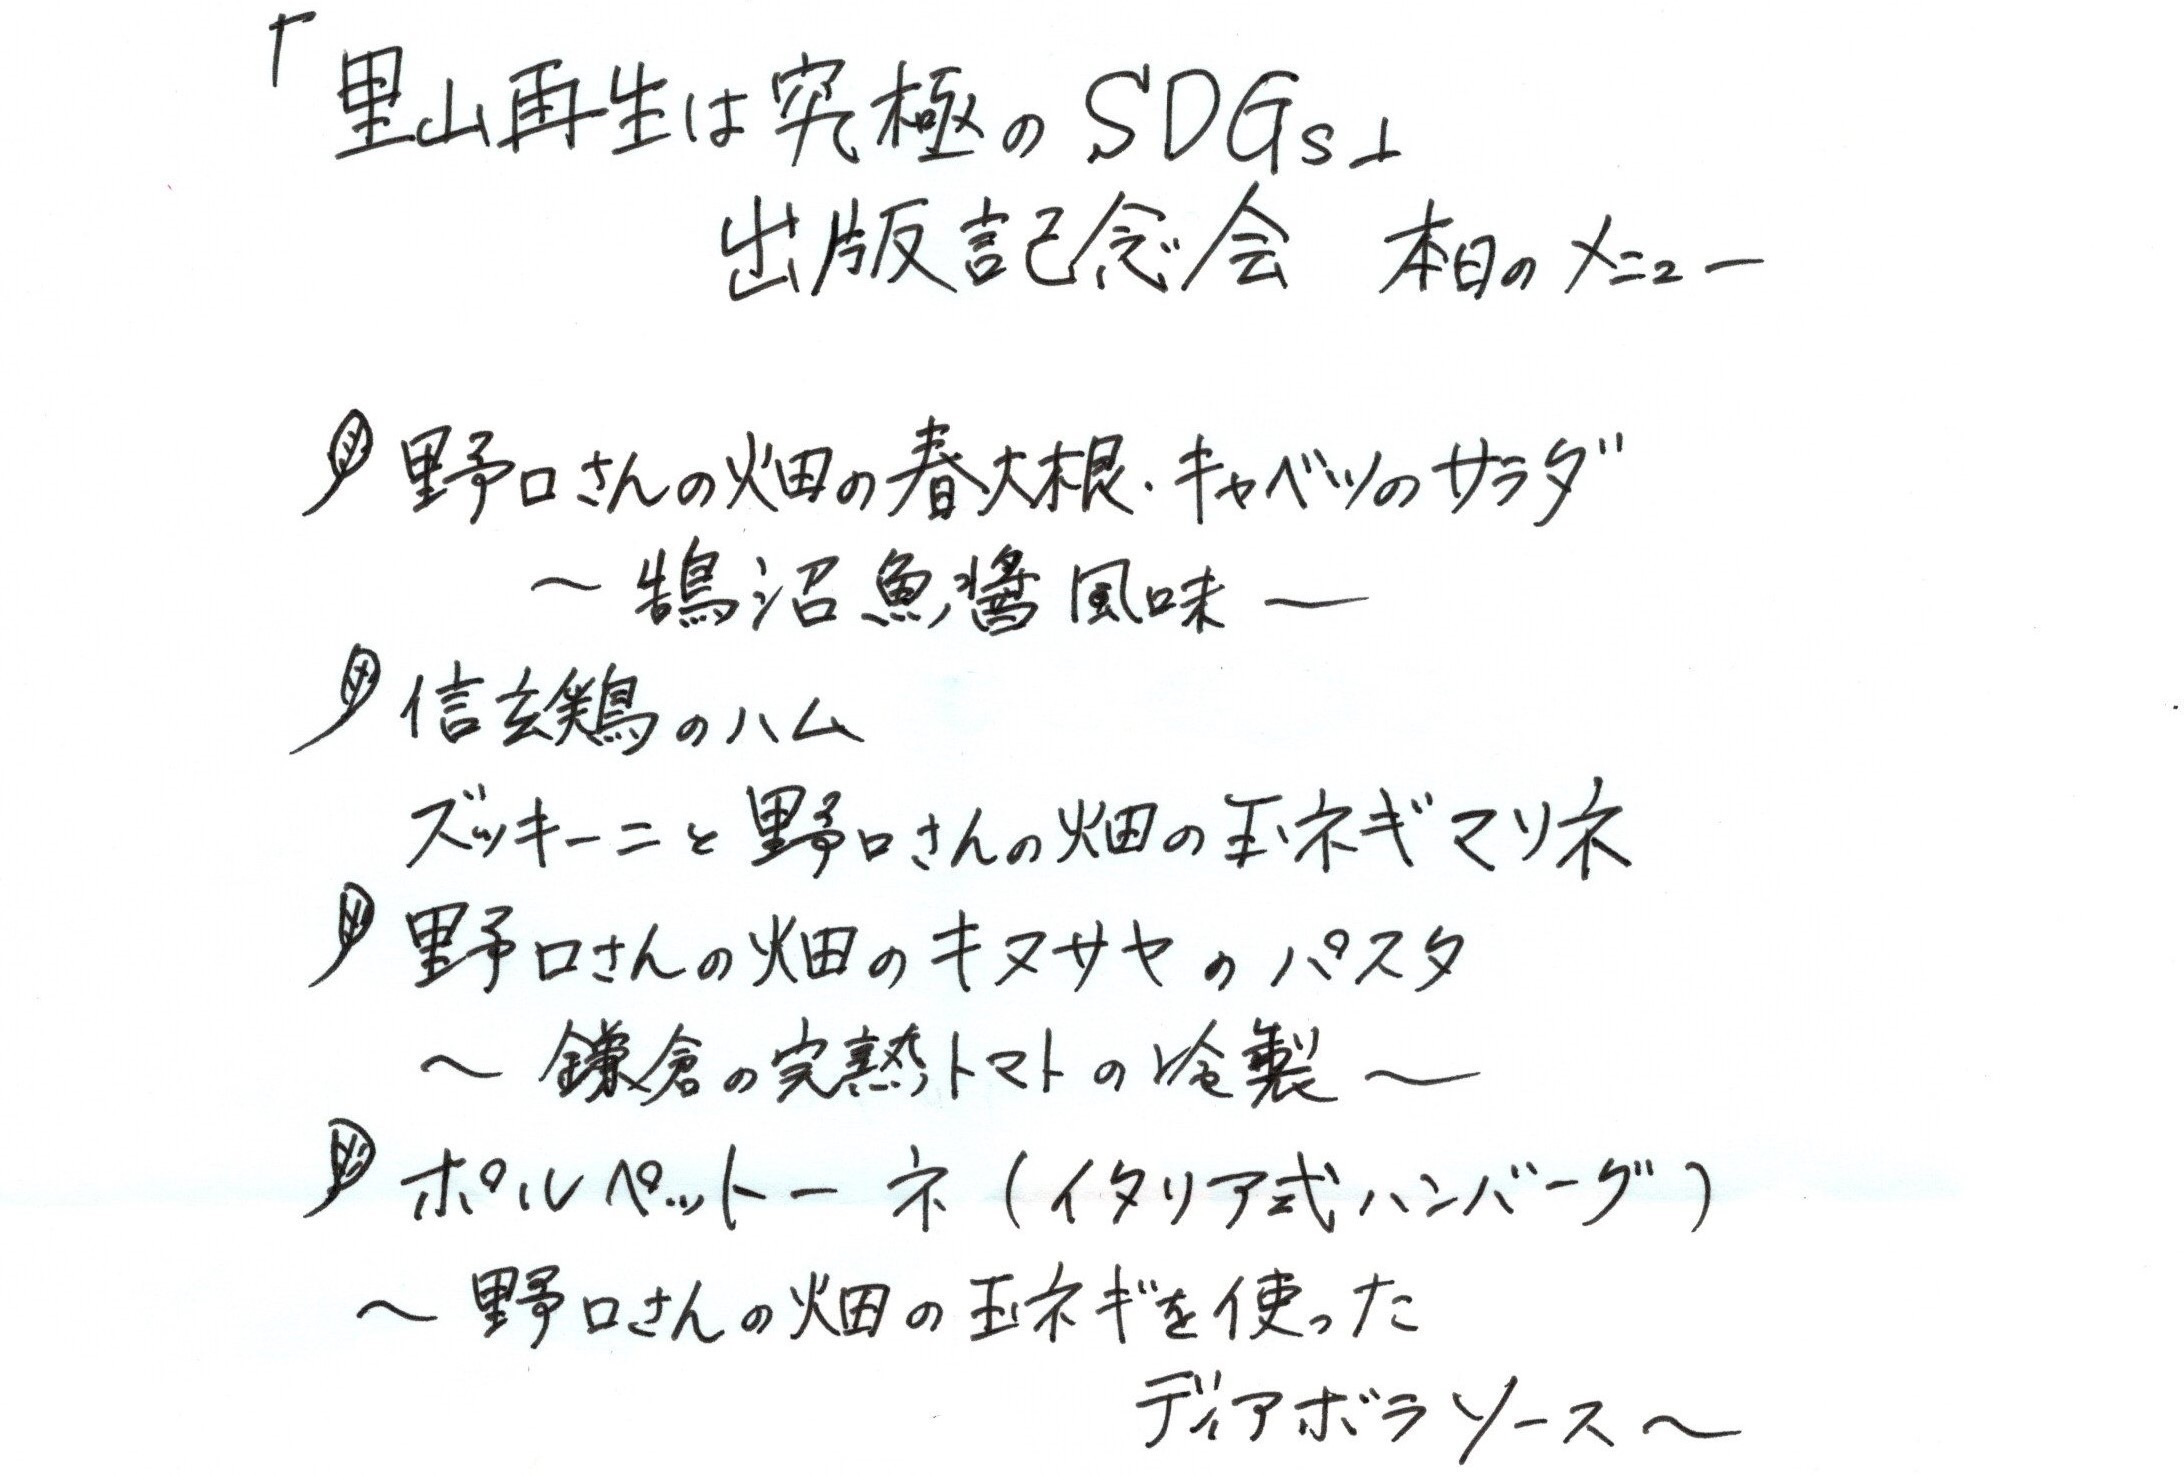 「里山再生は究極のSDGs」
出版記念会 本日のメニュー
野口さんの畑の春大根・キャベツのサラダ
～鵠沼魚醬風味～
信玄鶏のハム
ズッキーニと野口さんの畑の玉ネギマリネ
野口さんの畑のキヌサヤのパスタ
～鎌倉の完熟トマトの冷製～
ポルペットーネ（イタリア式ハンバーグ）
～野口さんの畑の玉ネギを使った
ディアボラソース～